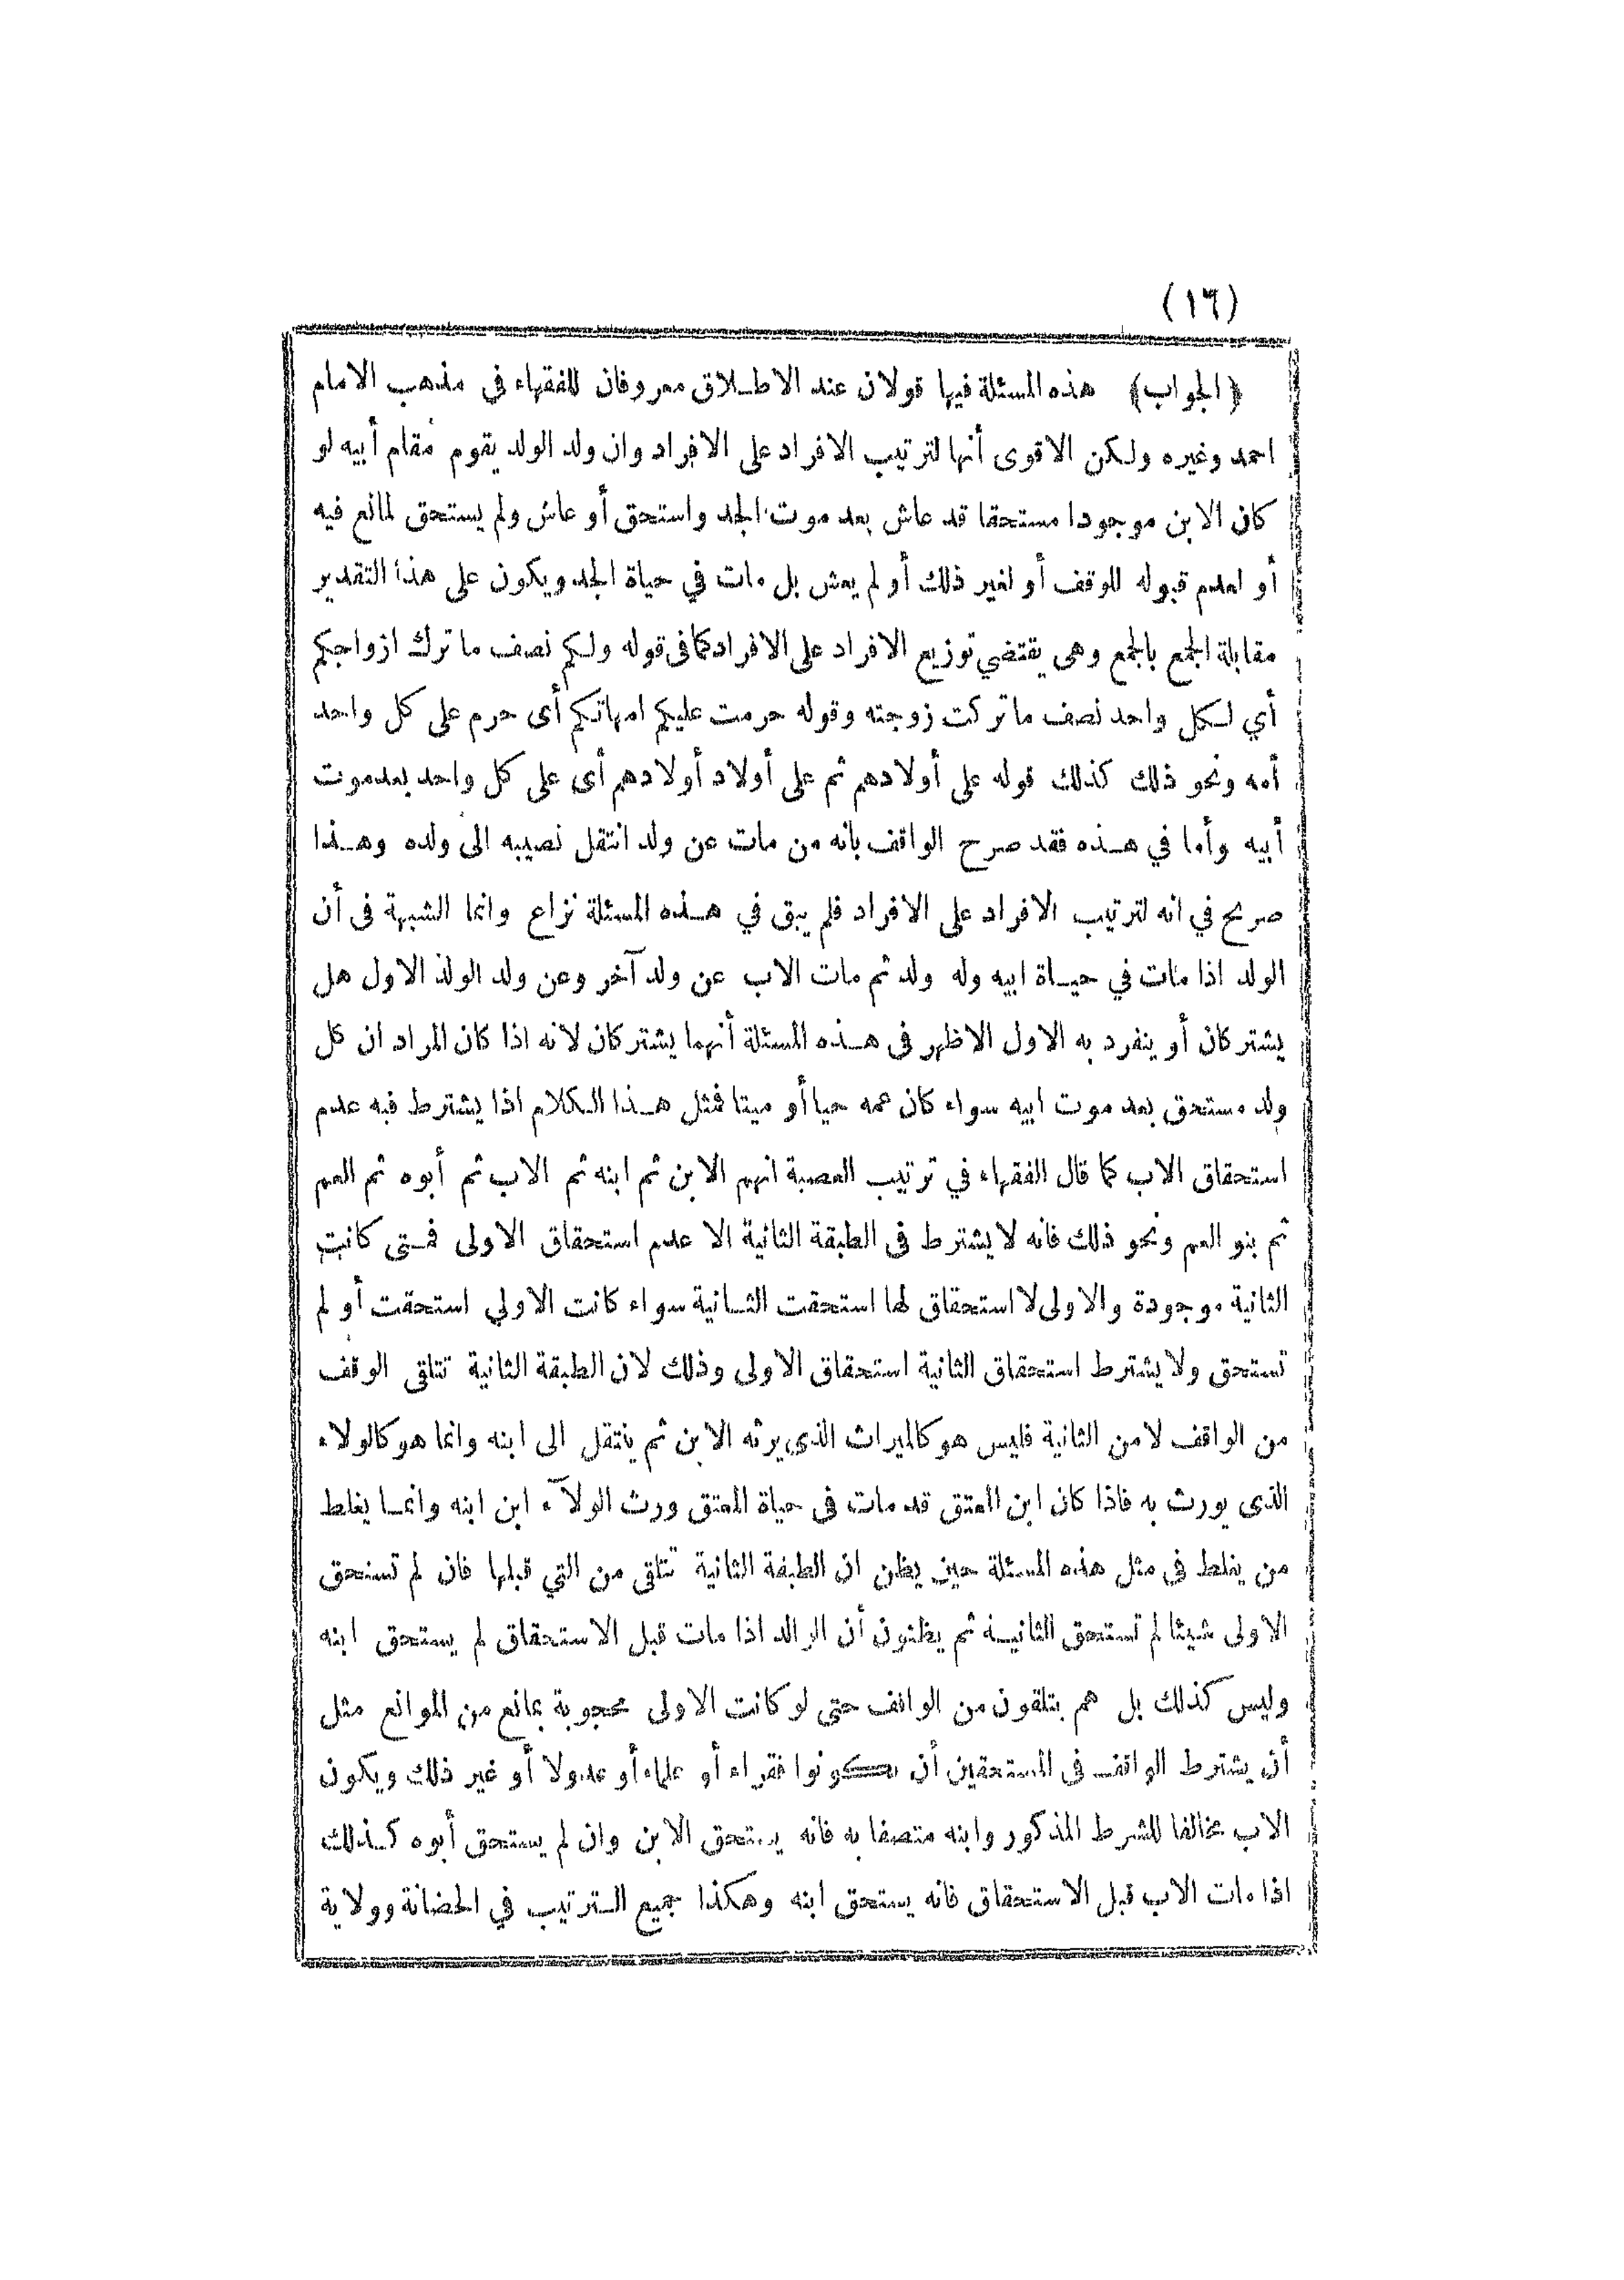 (١٦)
﴿الجواب﴾ هذه المسئلة فيها قولان عند الاطلاق معروفان للفقهاء في مذهب الامام
احمد وغيره ولكن الاقوى أنها لترتيب الافراد على الافراد وان ولد الولد يقوم مقام أبيه لو
كان الابن موجودا مستحقا قد عاش بعد موت الجد واستحق أو عاش ولم يستحق لمانع فيه
أو لعدم قبوله للوقف أو لغير ذلك أو لم يعش بل مات في حياة الجد ويكون على هذا التقدير
مقابلة الجمع بالجمع وهى يقتضي توزيع الافراد على الافراد كما فى قوله ولكم نصف ما ترك ازواجكم
أي لكل واحد نصف ما تركت زوجته وقوله حرمت عليكم امهاتكم أى حرم على كل واحد
أمه ونحو ذلك كذلك قوله على أولادهم ثم على أولاد أولادهم أى على كل واحد بعد موت
أبيه وأما في هذه فقد صرح الواقف بانه من مات عن ولد انتقل نصيبه الى ولده وهذا
صريح في انه لترتيب الافراد على الافراد فلم يبق في هذه المسئلة نزاع وانما الشبهة فى أن
الولد اذا مات في حياة ابيه وله ولد ثم مات الاب عن ولد آخر وعن ولد الولد الاول هل
يشتركان أو ينفرد به الاول الاظهر فى هذه المسئلة أنهما يشتركان لانه اذا كان المراد ان كل
ولد مستحق بعد موت ابيه سواء كان عمه حيا أو ميتا فمثل هذا الكلام اذا يشترط فيه عدم
استحقاق الاب كما قال الفقهاء في ترتيب العصبة انهم الابن ثم ابنه ثم الاب ثم أبوه ثم العم
ثم بنو العم ونحو ذلك فانه لا يشترط فى الطبقة الثانية الا عدم استحقاق الاولى فمتى كانت
الثانية موجودة والاولى لا استحقاق لها استحقت الثانية سواء كانت الاولي استحقت أو لم
تستحق ولا يشترط استحقاق الثانية استحقاق الاولى وذلك لان الطبقة الثانية تتلقى الوقف
من الواقف لا من الثانية فليس هو كالميراث الذي يرثه الابن ثم ينتقل الى ابنه وانما هو كالولاء
الذى يورث به فاذا كان ابن المعتق قد مات فى حياة المعتق ورث الولآء ابن ابنه وانما يغلط
من يغلط فى مثل هذه المسئلة حين يظن ان الطبقة الثانية تتلقى من التي قبلها فان لم تستحق
الاولى شيئا لم تستحق الثانية ثم يظنون أن الوالد اذا مات قبل الاستحقاق لم يستحق ابنه
وليس كذلك بل هم يتلقون من الواقف حتى لو كانت الاولى محجوبة بمانع من الموانع مثل
أن يشترط الواقف فى المستحقين أن يكونوا فقراء أو علماء أو عدولا أو غير ذلك ويكون
الاب مخالفا للشرط المذكور وابنه متصفا به فانه يستحق الابن وان لم يستحق أبوه كذلك
اذا مات الاب قبل الاستحقاق فانه يستحق ابنه وهكذا جميع الترتيب في الحضانة وولاية